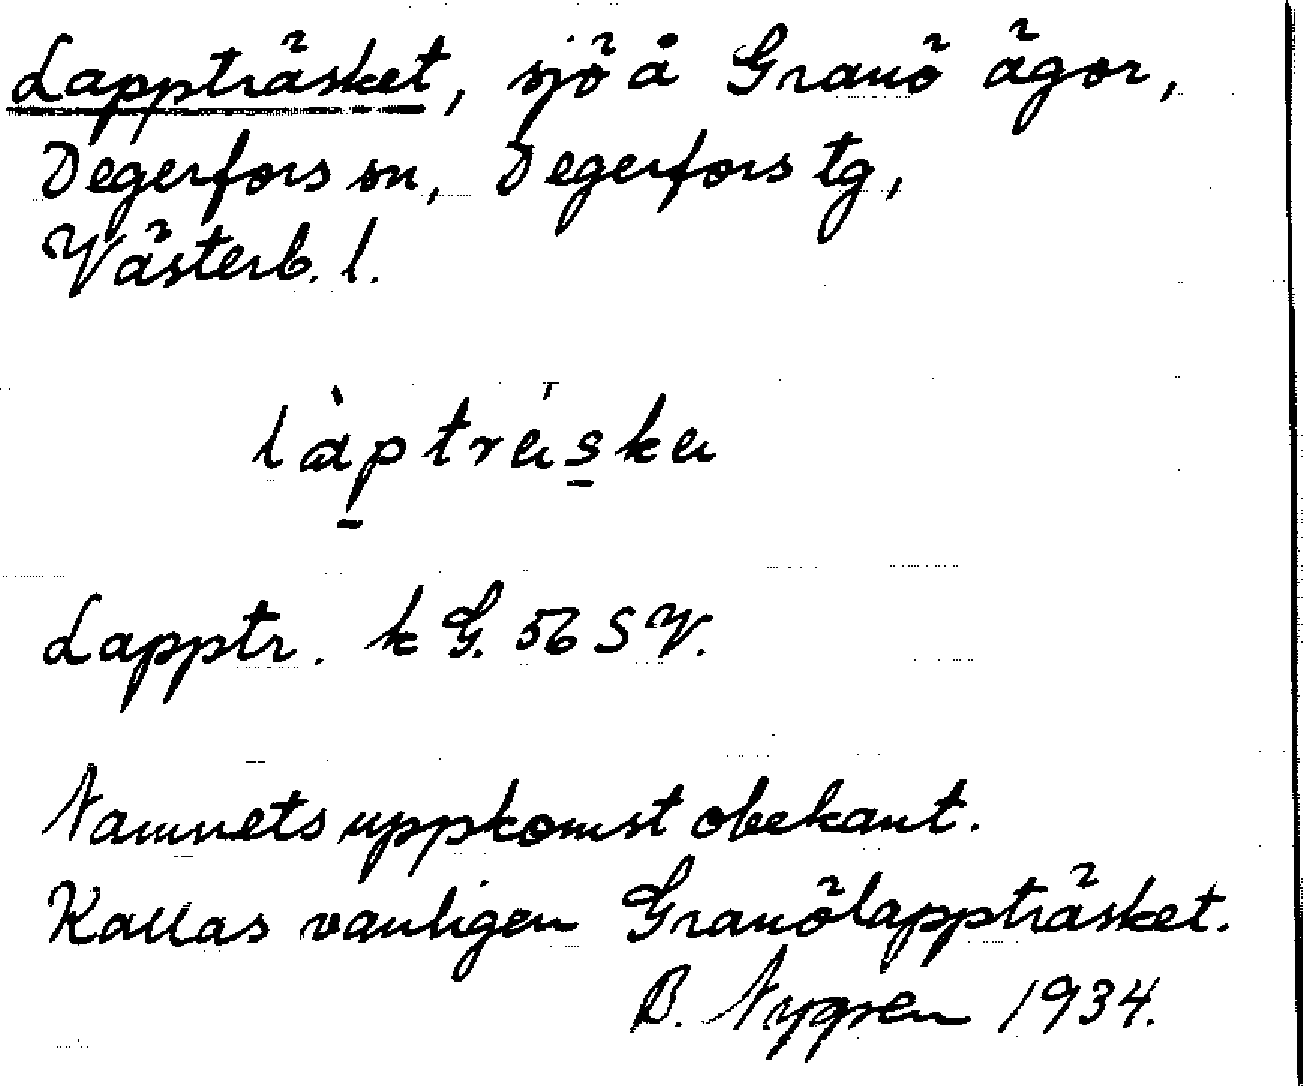 Lappträsket, sjö å Granö ägor,
Degerfors sn, Degerfors tg,
Västerb. l.
Lapptr. k G. 56 SV.
Namnets uppkomst obekant.
Kallas vanligen Granölappträsket.
B. Nygren 1934.